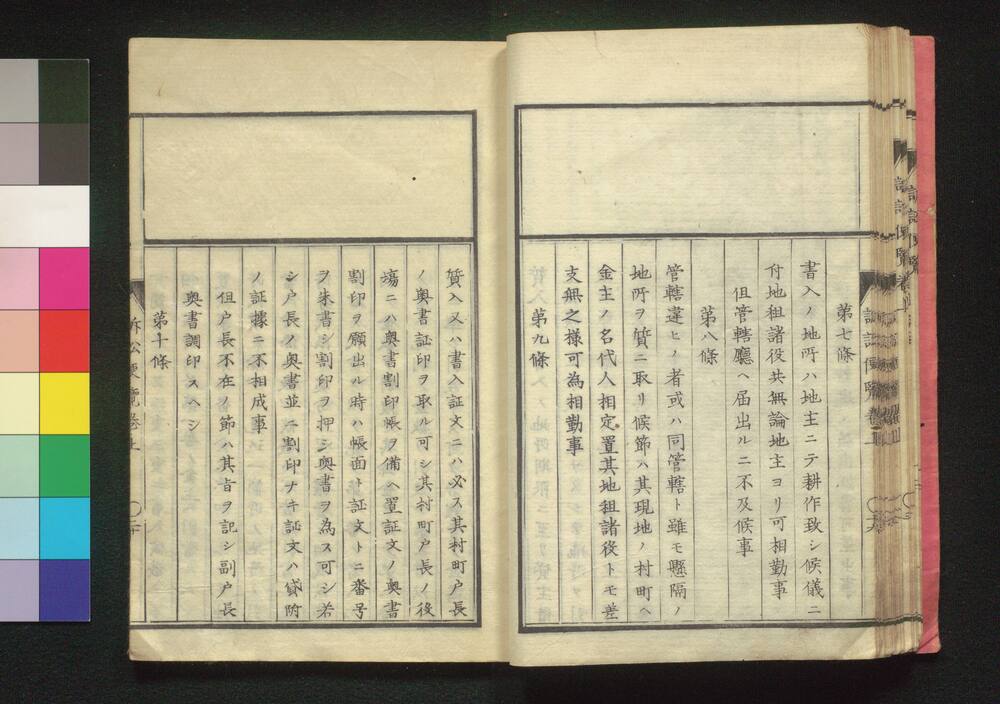 第七條
書入ノ地所ハ地主ニテ耕作致シ候儀ニ
付地租諸役共無論地主ヨリ可相勤事
但管轄廳ヘ届出ルニ不及候事
第八條
管轄違ヒノ者或ハ同管轄ト雖モ懸隔ノ
地所ヲ質ニ取リ候節ハ其現地ノ村町ヘ
金主ノ名代人相定置其地租諸役トモ差
支無之様可為相勤事
第九條
質入又ハ書入証文ニハ必ス其村町戸長
ノ奥書証印ヲ取ル可シ其村町戸長ノ役
場ニハ奥書割印帳ヲ備ヘ置証文ノ奥書
割印ヲ願出ル時ハ帳面ト証文トニ番号
ヲ朱書シ割印ヲ押シ奥書ヲ為ス可シ若
シ戸長ノ奥書並ニ割印ナキ証文ハ貸附
ノ証據ニ不相成事
但戸長不在ノ節ハ其旨ヲ記シ副戸長
奥書調印スヘシ
第十條
訴訟便覧卷上